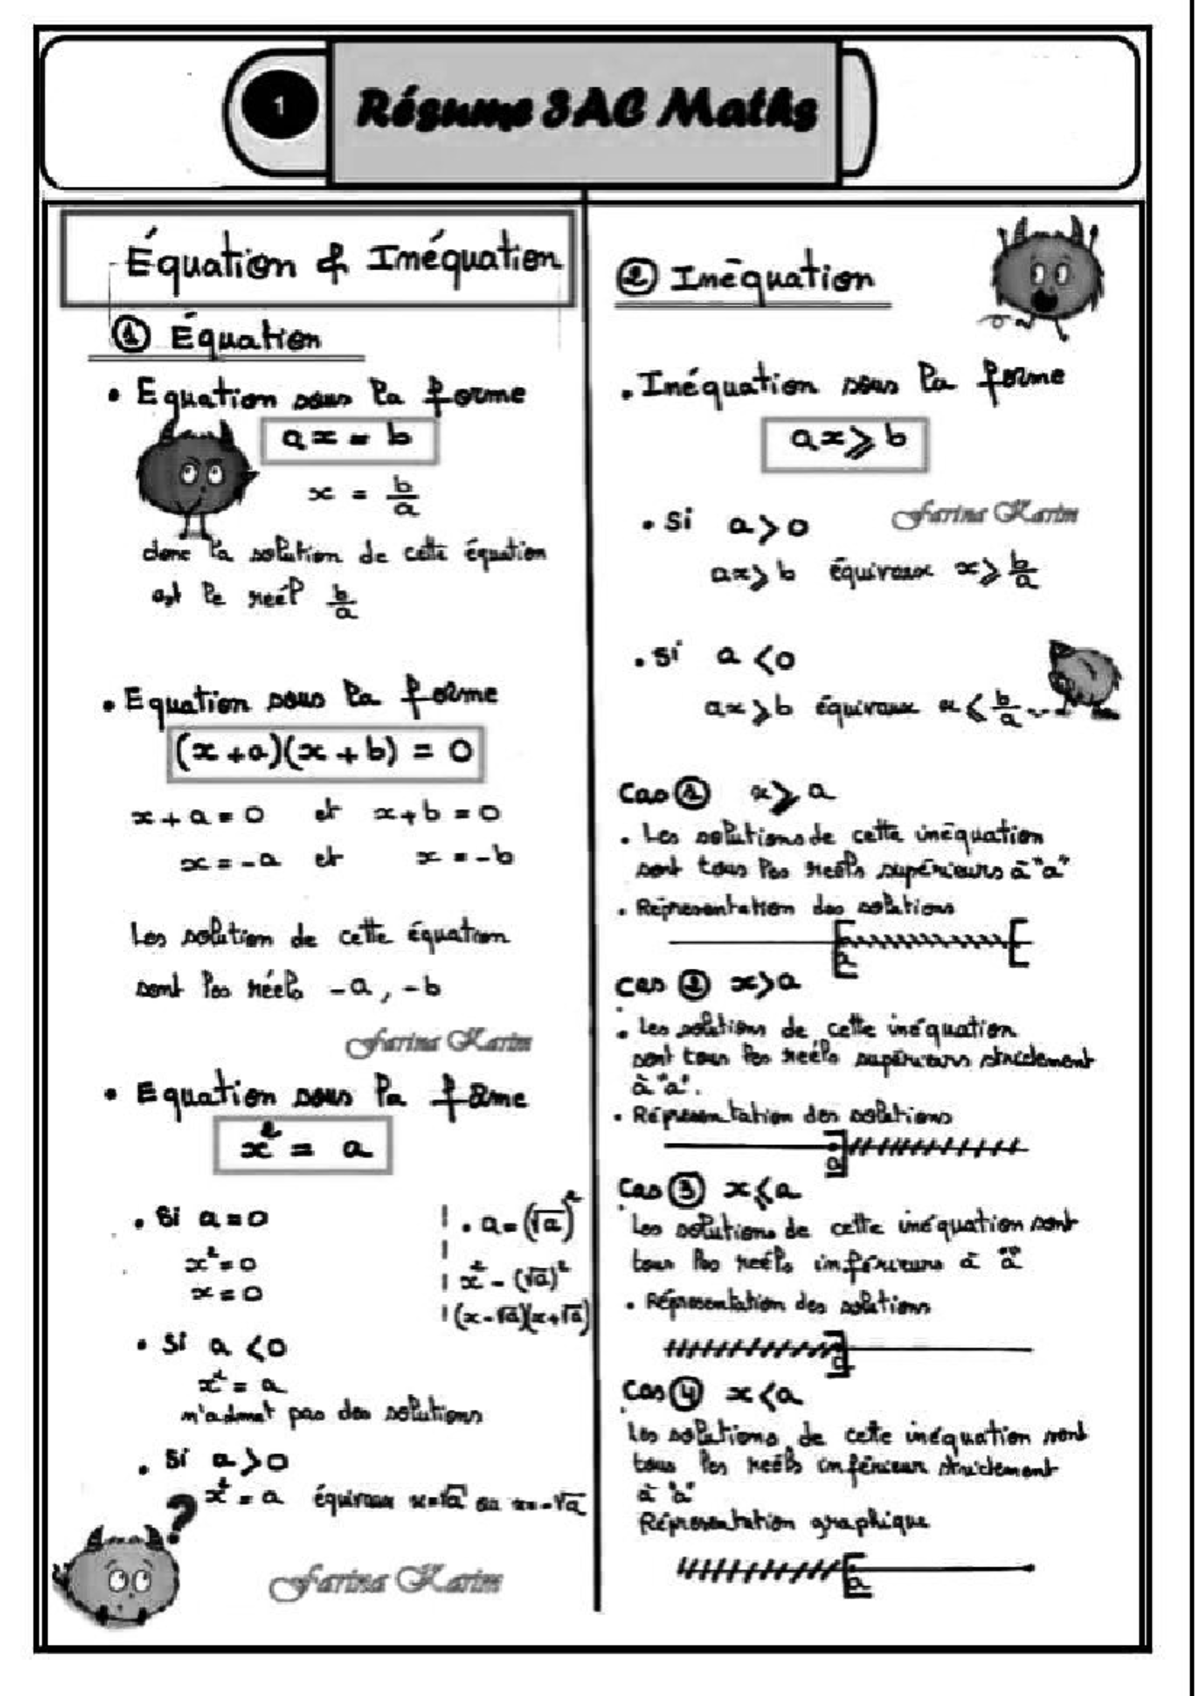 1
Résume 3AC Maths
Équation & Inéquation
① Équation
• Equation sous la forme
ax = b
x = b/a
donc la solution de cette équation
est le reél b/a
• Equation sous la forme
(x+a)(x+b) = 0
x+a=0 et x+b=0
x=-a et x=-b
Les solution de cette équation
sont les réels -a, -b
Farina Karim
• Equation sous la forme
x² = a
• Si a=0
x²=0
x=0
• a=(√a)²
x² - (√a)²
(x-√a)(x+√a)
• Si a<0
x²=a
n'admet pas des solutions
• Si a>0
x²=a équivaux x=√a ou x=-√a
?
Farina Karim
② Inéquation
• Inéquation sous la forme
ax⩾b
Farina Karim
• Si a>0
ax⩾b équivaux x⩾b/a
• Si a<0
ax⩾b équivaux x⩽b/a
Cas ① x⩾a
• Les solutions de cette inéquation
sont tous les reéls supérieurs à "a"
• Réprésentation des solutions
a
Cas ② x>a
• Les solutions de cette inéquation
sont tous les reéls supérieurs strictement
à "a".
• Réprésentation des solutions
a
Cas ③ x⩽a
Les solutions de cette inéquation sont
tous les reéls inférieurs à "a"
• Réprésentation des solutions
a
Cas ④ x<a
les solutions de cette inéquation sont
tous les reéls inférieur strictement
à "a"
Réprésentation graphique
a